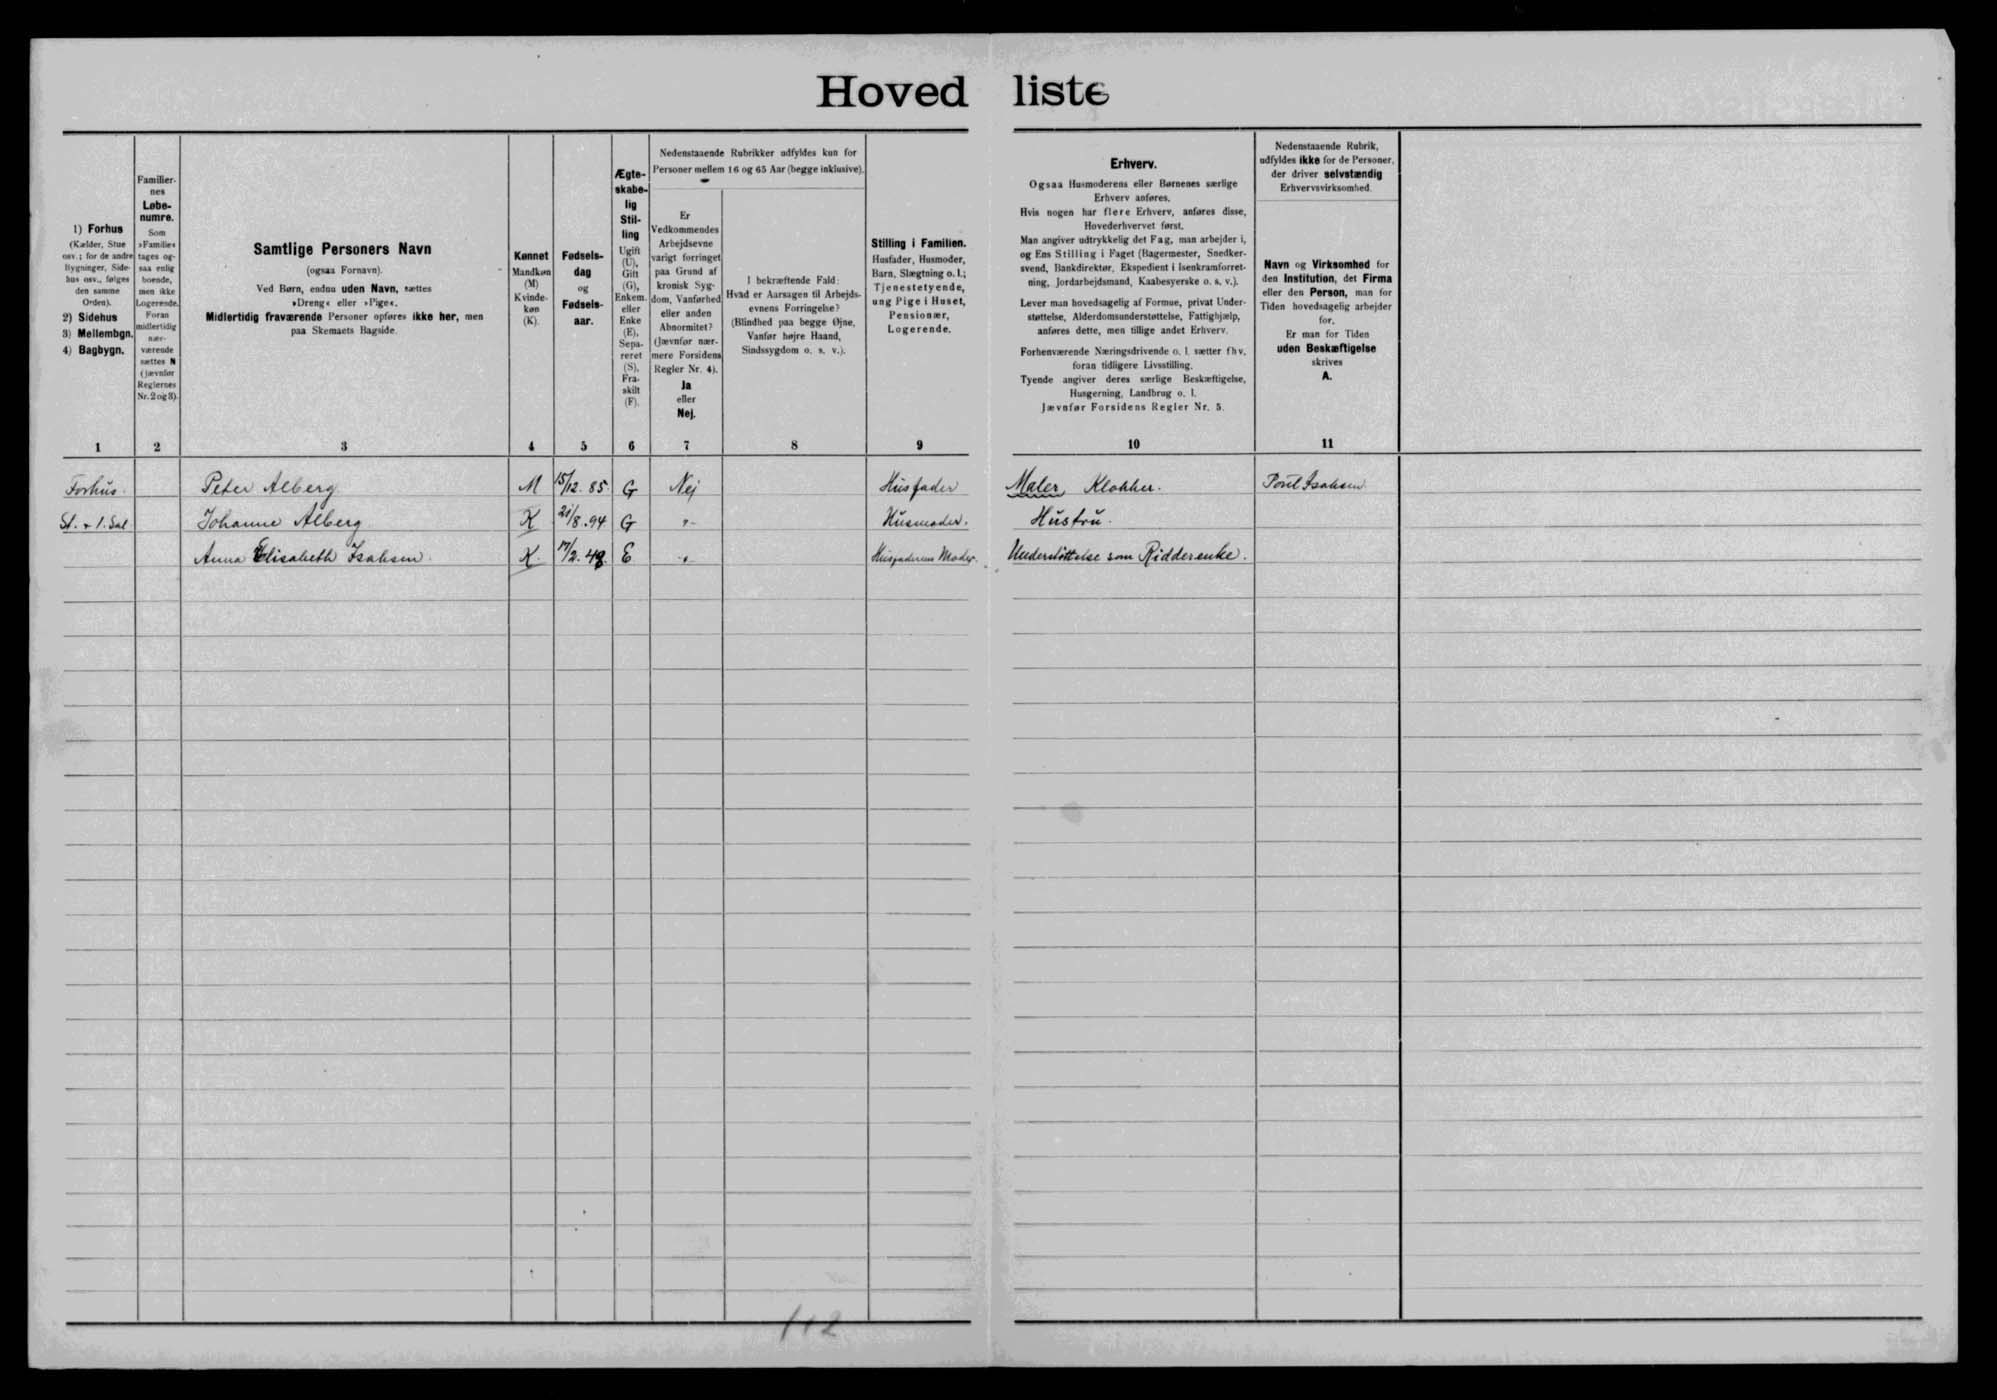 Hovedliste
1) Forhus
(Kælder, Stue
osv.; for de andre
Bygninger, Side-
hus osv., følges
den samme
Orden).
2) Sidehus
3) Mellembgn.
4) Bagbygn.
Familier-
nes
Løbe-
numre.
Som
»Familie«
tages og-
saa enlig
boende,
men ikke
Logerende.
Foran
midlertidig
nær-
værende
sættes N
(jævnfør
Reglernes
Nr. 2 og 3).
Samtlige Personers Navn
(ogsaa Fornavn).
Ved Børn, endnu uden Navn, sættes
»Dreng« eller »Pige«.
Midlertidig fraværende Personer opføres ikke her, men
paa Skemaets Bagside.
Kønnet
Mandkøn
(M)
Kvinde-
køn
(K).
Fødsels-
dag
og
Fødsels-
aar.
Ægte-
skabe-
lig
Stil-
ling
Ugift
(U),
Gift
(G),
Enkem.
eller
Enke
(E),
Sepa-
reret
(S),
Fra-
skilt
(F).
Nedenstaaende Rubrikker udfyldes kun for
Personer mellem 16 og 65 Aar (begge inklusive).
Er
Vedkommendes
Arbejdsevne
varigt forringet
paa Grund af
kronisk Syg-
dom, Vanførhed
eller anden
Abnormitet?
(Jævnfør nær-
mere Forsidens
Regler Nr. 4).
Ja
eller
Nej.
I bekræftende Fald:
Hvad er Aarsagen til Arbejds-
evnens Forringelse?
(Blindhed paa begge Øjne,
Vanfør højre Haand,
Sindssygdom o. s. v.).
Stilling i Familien.
Husfader, Husmoder,
Barn, Slægtning o. l.;
Tjenestetyende,
ung Pige i Huset,
Pensionær,
Logerende.
Erhverv.
Ogsaa Husmoderens eller Børnenes særlige
Erhverv anføres.
Hvis nogen har flere Erhverv, anføres disse,
Hovederhvervet først.
Man angiver udtrykkelig det Fag, man arbejder i,
og Ens Stilling i Faget (Bagermester, Snedker-
svend, Bankdirektør, Ekspedient i Isenkramforret-
ning, Jordarbejdsmand, Kaabesyerske o. s. v.).
Lever man hovedsagelig af Formue, privat Under-
støttelse, Alderdomsunderstøttelse, Fattighjælp,
anføres dette, men tillige andet Erhverv.
Forhenværende Næringsdrivende o. l. sætter fhv.
foran tidligere Livsstilling.
Tyende angiver deres særlige Beskæftigelse,
Husgerning, Landbrug o. l.
Jævnfør Forsidens Regler Nr. 5.
Nedenstaaende Rubrik,
udfyldes ikke for de Personer,
der driver selvstændig
Erhvervsvirksomhed.
Navn og Virksomhed for
den Institution, det Firma
eller den Person, man for
Tiden hovedsagelig arbejder
for.
Er man for Tiden
uden Beskæftigelse
skrives
A.
1 2 3 4 5 6 7 8 9 10 11
Forhus. Peter Alberg M 15/12.85. G Nej Husfader Maler, Klokker. Poul Isaksen
St. + 1. Sal Johanne Alberg K 21/8.94 G " Husmoder. Hustru.
Anna Elisabeth Isaksen. K. 17/2.48. E " Husfaderens Moder. Understøttelse som Ridderenke.
112